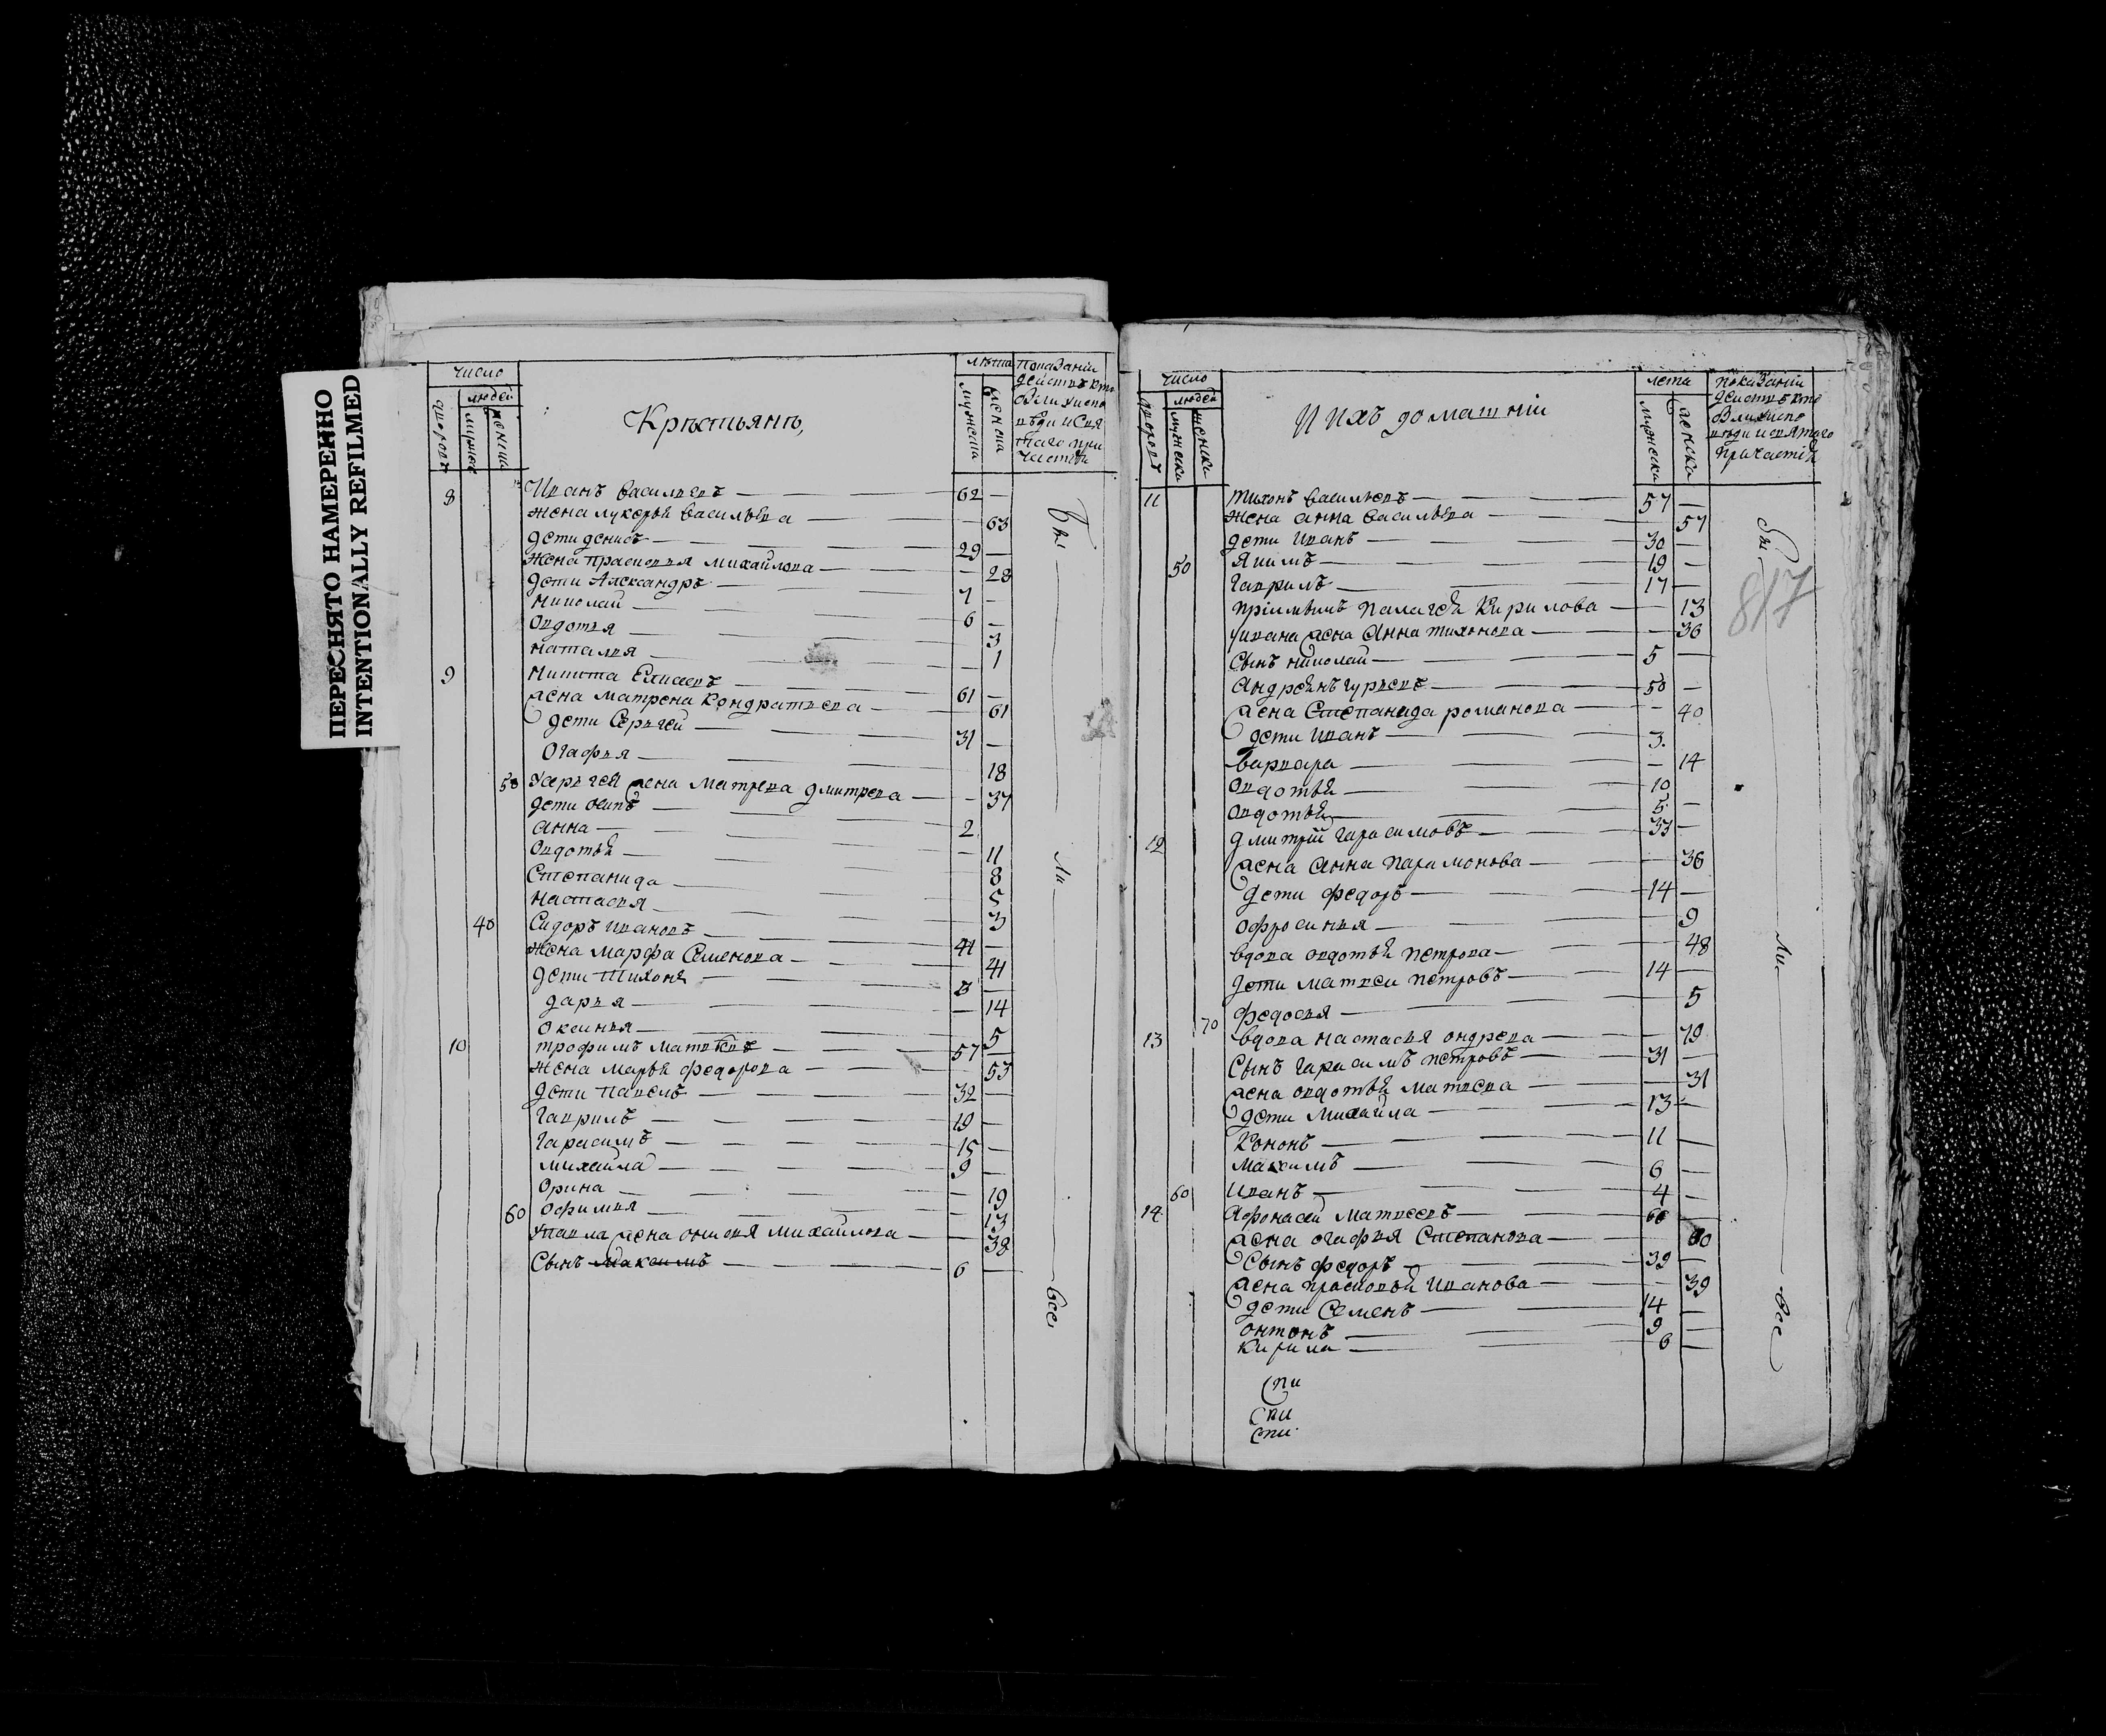 ПЕРЕСНЯТО НАМЕРЕННО
INTENTIONALLY REFILMED
число
людей
дворовъ
мужска
женска
Крестьянъ,
лѣта
мужеска
женска
показаніи
действъ кто
былъ уиспо
вѣди и свя
таго при
частія
8 Иванъ Васильевъ 62
жена лукерья Васильева 63
дети денисъ 29
жена Прасковья михайлова 28
дети Александръ 7
николай 6
Овдотья 3
наталья 1
9 никита Елисеевъ 61
жена матрена Кондратьева 61
дети Сергей 31
Огафья 18
50 Усергея жена матрена дмитрева 37
дети осипъ 2
анна 11
Овдотья 8
Степанида 5
настасья 3
40 Сидоръ ивановъ 41
жена марфа Семенова 41
дети Тихонъ 8
дарья 14
Оксинья 5
10 трофимъ матвѣевъ 57
жена марья федорова 53
дети павелъ 32
гаврилъ 19
гарасимъ 15
михайла 9
Орина 19
60 Офимья 13
Упавла жена онисья михайлова 38
Сынъ Максимъ 6
бы
ли
все
число
людей
дворовъ
мужеска
женска
И ихъ домашніи
лета
мужеска
женска
показаніи
действъ кто
былъ уиспо
вѣди и святаго
причастія
817
11 тихонъ Васильевъ 57
жена анна Васильева 57
дети Иванъ 30
50 Якимъ 19
гаврилъ 17
пріимышъ палагея Кирилова 13
уивана жена Анна тихонова 36
Сынъ николай 5
Андреянъ гурьевъ 50
жена Степанида романова 40
дети Иванъ 3
Варвара 14
Овдотья 10
Овдотья 5
12 дмитрій гарасимовъ 33
жена Анна парамонова 36
дети федоръ 14
Офросинья 9
вдова овдотья петрова 48
дети матвеи петровъ 14
70 федосья 5
13 вдова настасья ондрева 79
Сынъ гарасимъ петровъ 31
жена овдотья матвева 31
дети михайла 13
Кононъ 11
максимъ 6
60 иванъ 4
14 Афонасей матвеевъ 60
жена огафья Степанова 60
Сынъ федоръ 39
жена прасковья Иванова 39
дети Семенъ 14
онтонъ 9
кирила 6
бы
ли
все